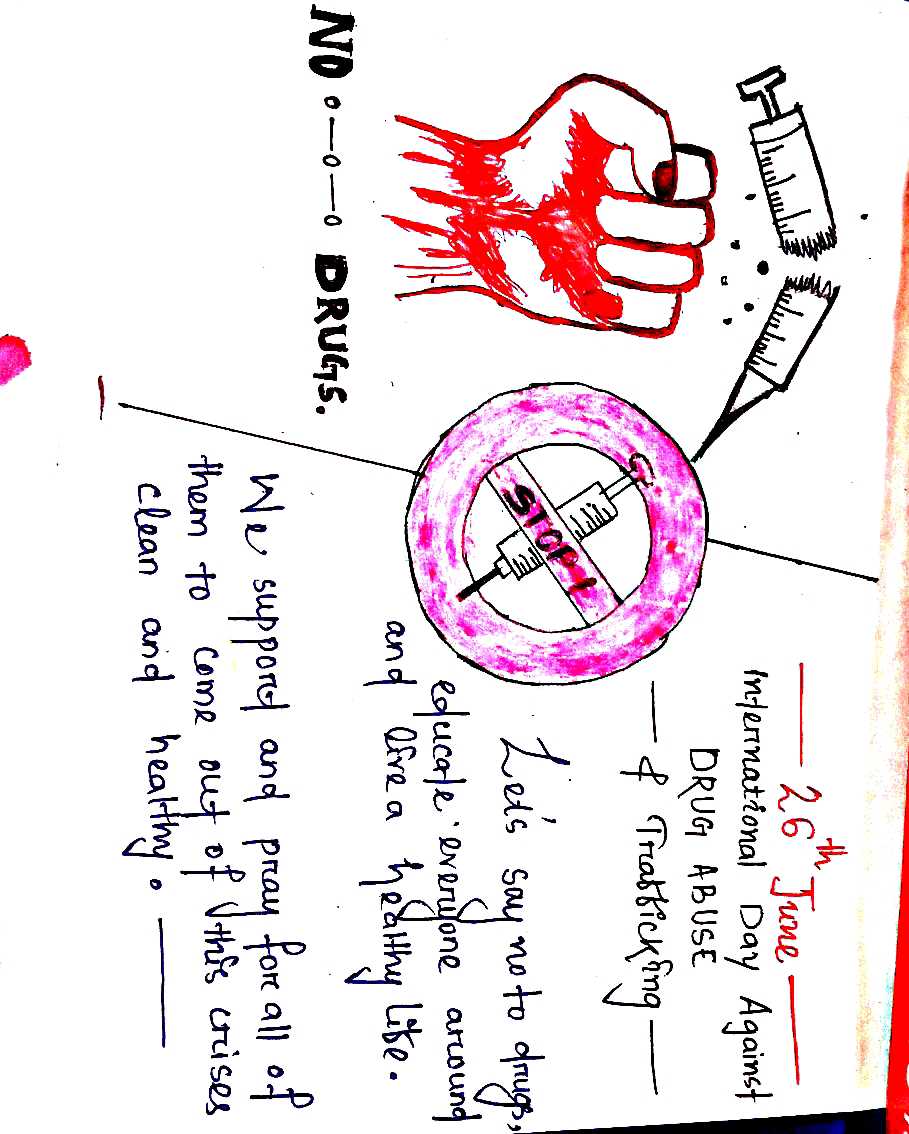 26th June
International Day Against
DRUG ABUSE
& Trafficking
Let's say no to drugs,
educate everyone around
and live a healthy life.
We support and pray for all of
them to come out of this crises
clean and healthy.
STOP!
NO DRUGS.